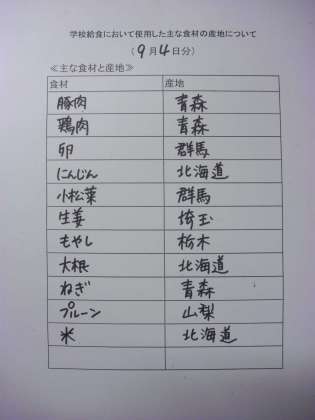 学校給食において使用した主な食材の産地について
(9月4日分)
≪主な食材と産地≫
食材 産地
豚肉 青森
鶏肉 青森
卵 群馬
にんじん 北海道
小松菜 群馬
生姜 埼玉
もやし 栃木
大根 北海道
ねぎ 青森
プルーン 山梨
米 北海道